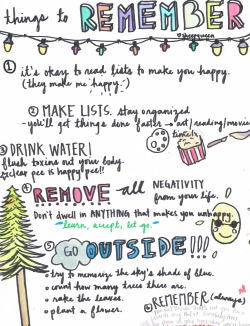 things to REMEMBER
@sheepqueen
① it's okay to read lists to make you happy.
(they made me happy.)
② MAKE LISTS. stay organized
-you'll get things done faster → art/reading/movie
time!
③ DRINK WATER!
flush toxins out your body.
clear pee is happy pee!!
④ REMOVE all NEGATIVITY
from your life.
Don't dwell in ANYTHING that makes you unhappy.
learn, accept, let go.
⑤ GO OUTSIDE!!!
• try to memorize the sky's shade of blue.
• count how many trees there are.
• rake the leaves.
• plant a flower.
⑥ REMEMBER (always)